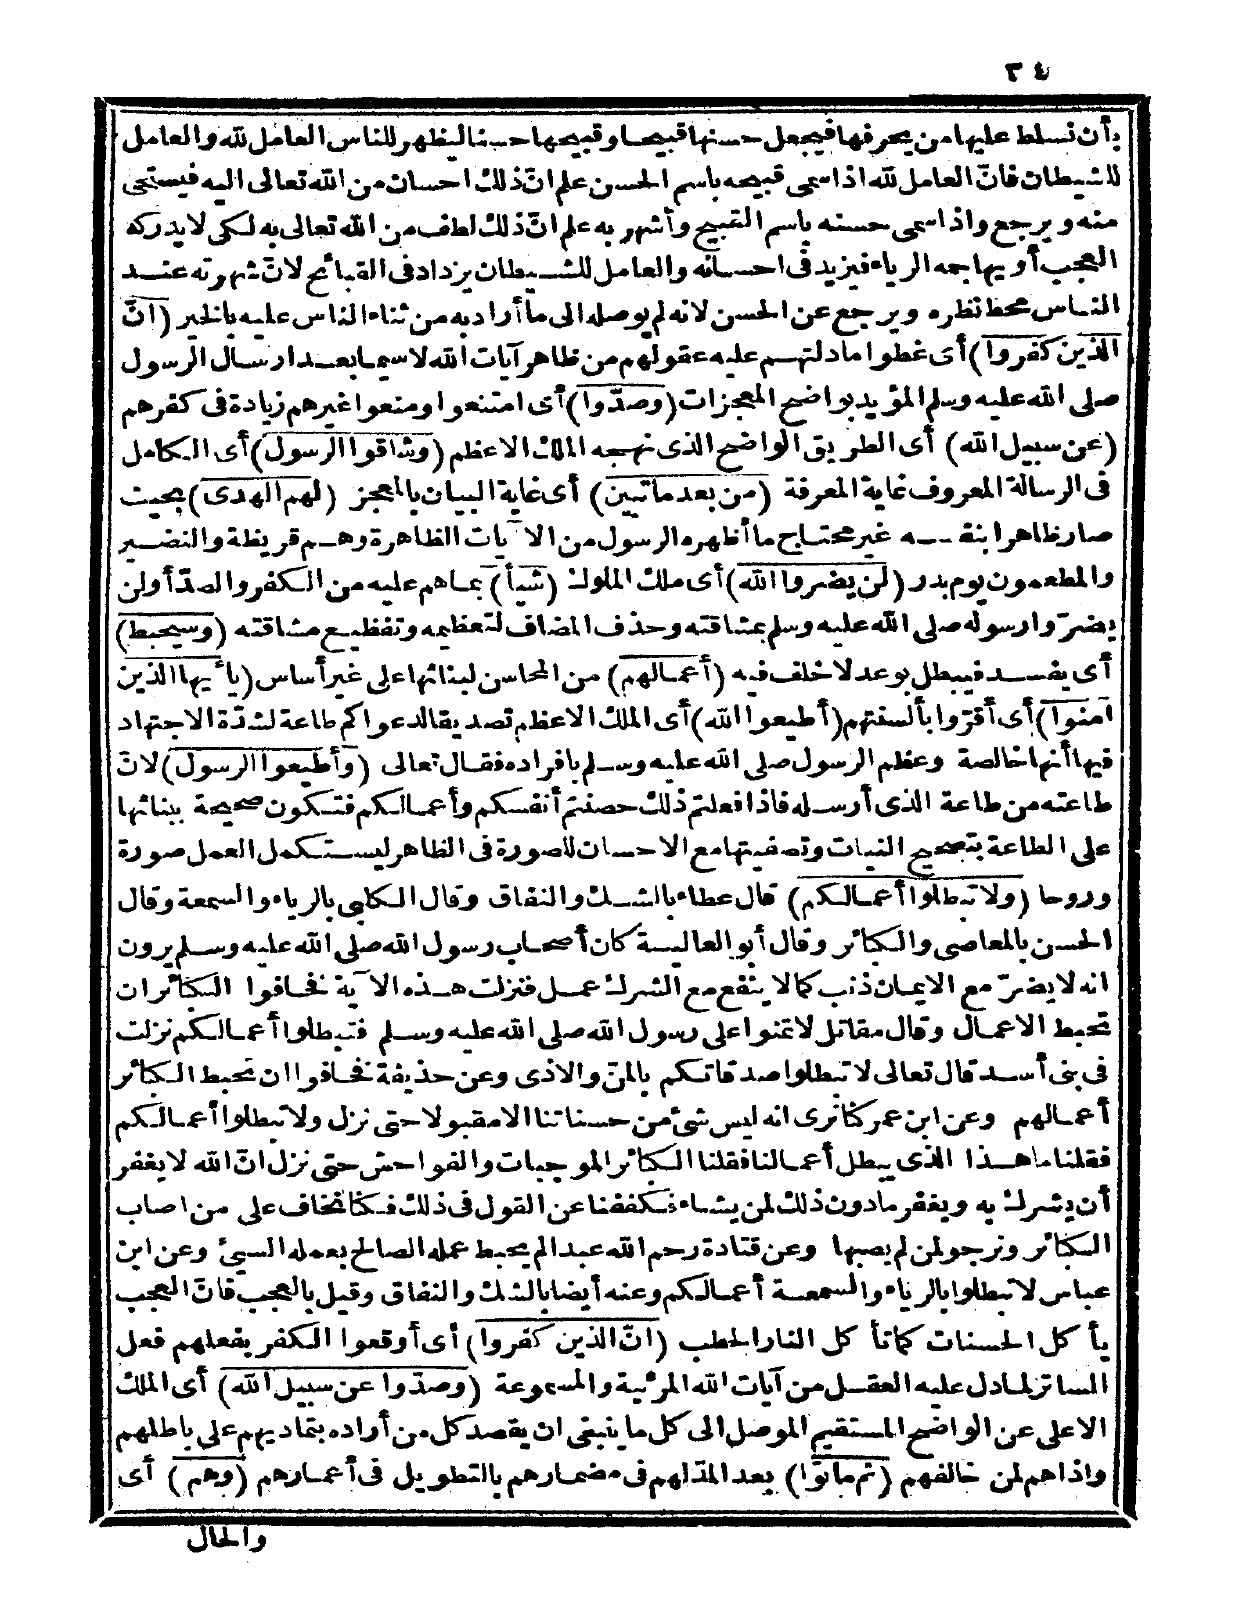 ٣٤
بأن نسلط عليها من يحرفها فيجعل حسنها قبيحا وقبيحها حسنا ليظهر للناس العامل لله والعامل
للشيطان فانّ العامل لله اذا سمى قبيحه باسم الحسن علم انّ ذلك احسان من الله تعالى اليه فيستحى
منه ويرجع واذا سمى حسنه باسم القبيح وأشهر به علم انّ ذلك لطف من الله تعالى به لكى لا يدركه
العجب أو يهاجمه الرياء فيزيد فى احسانه والعامل للشيطان يزداد فى القبائح لانّ شهرته عند
الناس محط نظره ويرجع عن الحسن لانه لم يوصله الى ما أراد به من ثناء الناس عليه بالخير (انّ
الذين كفروا) أى غطوا ما دلتهم عليه عقولهم من ظاهر آيات الله لا سيما بعد ارسال الرسول
صلى الله عليه وسلم المؤيد بواضح المعجزات (وصدّوا) أى امتنعوا ومنعوا غيرهم زيادة فى كفرهم
(عن سبيل الله) أى الطريق الواضح الذى نهجه الملك الاعظم (وشاقوا الرسول) أى الكامل
فى الرسالة المعروف غاية المعرفة (من بعد ما تبين) أى غاية البيان بالمعجز (لهم الهدى) بحيث
صار ظاهرا بنفسه غير محتاج ما أظهره الرسول من الآيات الظاهرة وهم قريظة والنضير
والمطعمون يوم بدر (لن يضروا الله) أى ملك الملوك (شيأ) بما هم عليه من الكفر والصدّ أو لن
يضرّوا رسوله صلى الله عليه وسلم بمشاقته وحذف المضاف لتعظيمه وتفظيع مشاقته (وسيحبط)
أى يفسد فيبطل بوعد لا خلف فيه (أعمالهم) من المحاسن لبنائها على غير أساس (يأيها الذين
آمنوا) أى أقرّوا بألسنتهم (أطيعوا الله) أى الملك الاعظم تصديقا لدعواكم طاعة لشدّة الاجتهاد
فيها أنها خالصة وعظم الرسول صلى الله عليه وسلم بافراده فقال تعالى (وأطيعوا الرسول) لانّ
طاعته من طاعة الذى أرسله فاذا فعلتم ذلك حصنتم أنفسكم وأعمالكم فتكون صحيحة ببنائها
على الطاعة بتصحيح النيات وتصفيتها مع الاحسان للصورة فى الظاهر ليستكمل العمل صورة
وروحا (ولا تبطلوا أعمالكم) قال عطاء بالشك والنفاق وقال الكلبى بالرياء والسمعة وقال
الحسن بالمعاصى والكبائر وقال أبو العالية كان أصحاب رسول الله صلى الله عليه وسلم يرون
انه لا يضرّ مع الايمان ذنب كما لا ينفع مع الشرك عمل فنزلت هذه الآية فخافوا الكبائر ان
تحبط الاعمال وقال مقاتل لا تمنوا على رسول الله صلى الله عليه وسلم فتبطلوا أعمالكم نزلت
فى بنى أسد قال تعالى لا تبطلوا صدقاتكم بالمنّ والاذى وعن حذيفة فخافوا ان تحبط الكبائر
أعمالهم وعن ابن عمر كنا نرى انه ليس شئ من حسناتنا الا مقبولا حتى نزل ولا تبطلوا أعمالكم
فقلنا ما هذا الذى يبطل أعمالنا فقلنا الكبائر الموجبات والفواحش حتى نزل انّ الله لا يغفر
أن يشرك به ويغفر ما دون ذلك لمن يشاء فكففنا عن القول فى ذلك فكنا نخاف على من اصاب
الكبائر ونرجو لمن لم يصبها وعن قتادة رحم الله عبدا لم يحبط عمله الصالح بعمله السيئ وعن ابن
عباس لا تبطلوا بالرياء والسمعة أعمالكم وعنه أيضا بالشك والنفاق وقيل بالعجب فانّ العجب
يأكل الحسنات كما تأكل النار الحطب (انّ الذين كفروا) أى أوقعوا الكفر بفعلهم فعل
الساتر لما دل عليه العقل من آيات الله المرئية والمسموعة (وصدّوا عن سبيل الله) أى الملك
الاعلى عن الواضح المستقيم الموصل الى كل ما ينبغى ان يقصد كل من أراده بتماديهم على باطلهم
واذاهم لمن خالفهم (ثم ماتوا) بعد المدّ لهم فى مضمارهم بالتطويل فى أعمارهم (وهم) أى
والحال